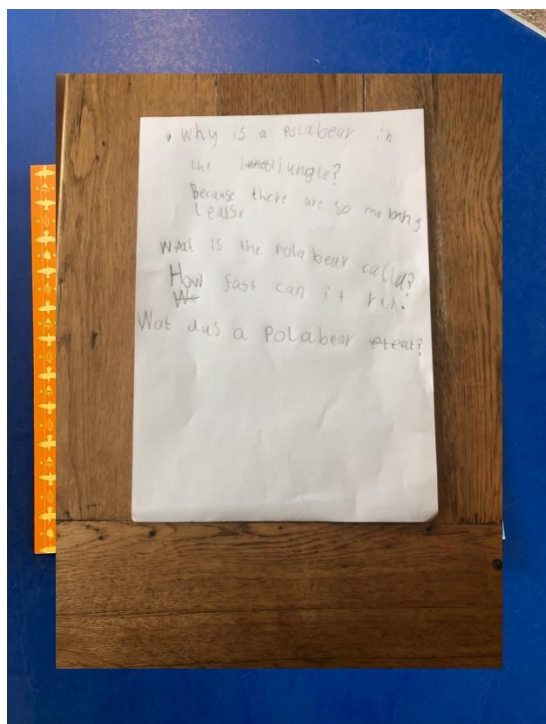 Why is a polabear in
the jungle?
Because there are so me
Leafs,
Wat is the pola bear calld?
How fast can it run?
Wat dus a polabear eat?